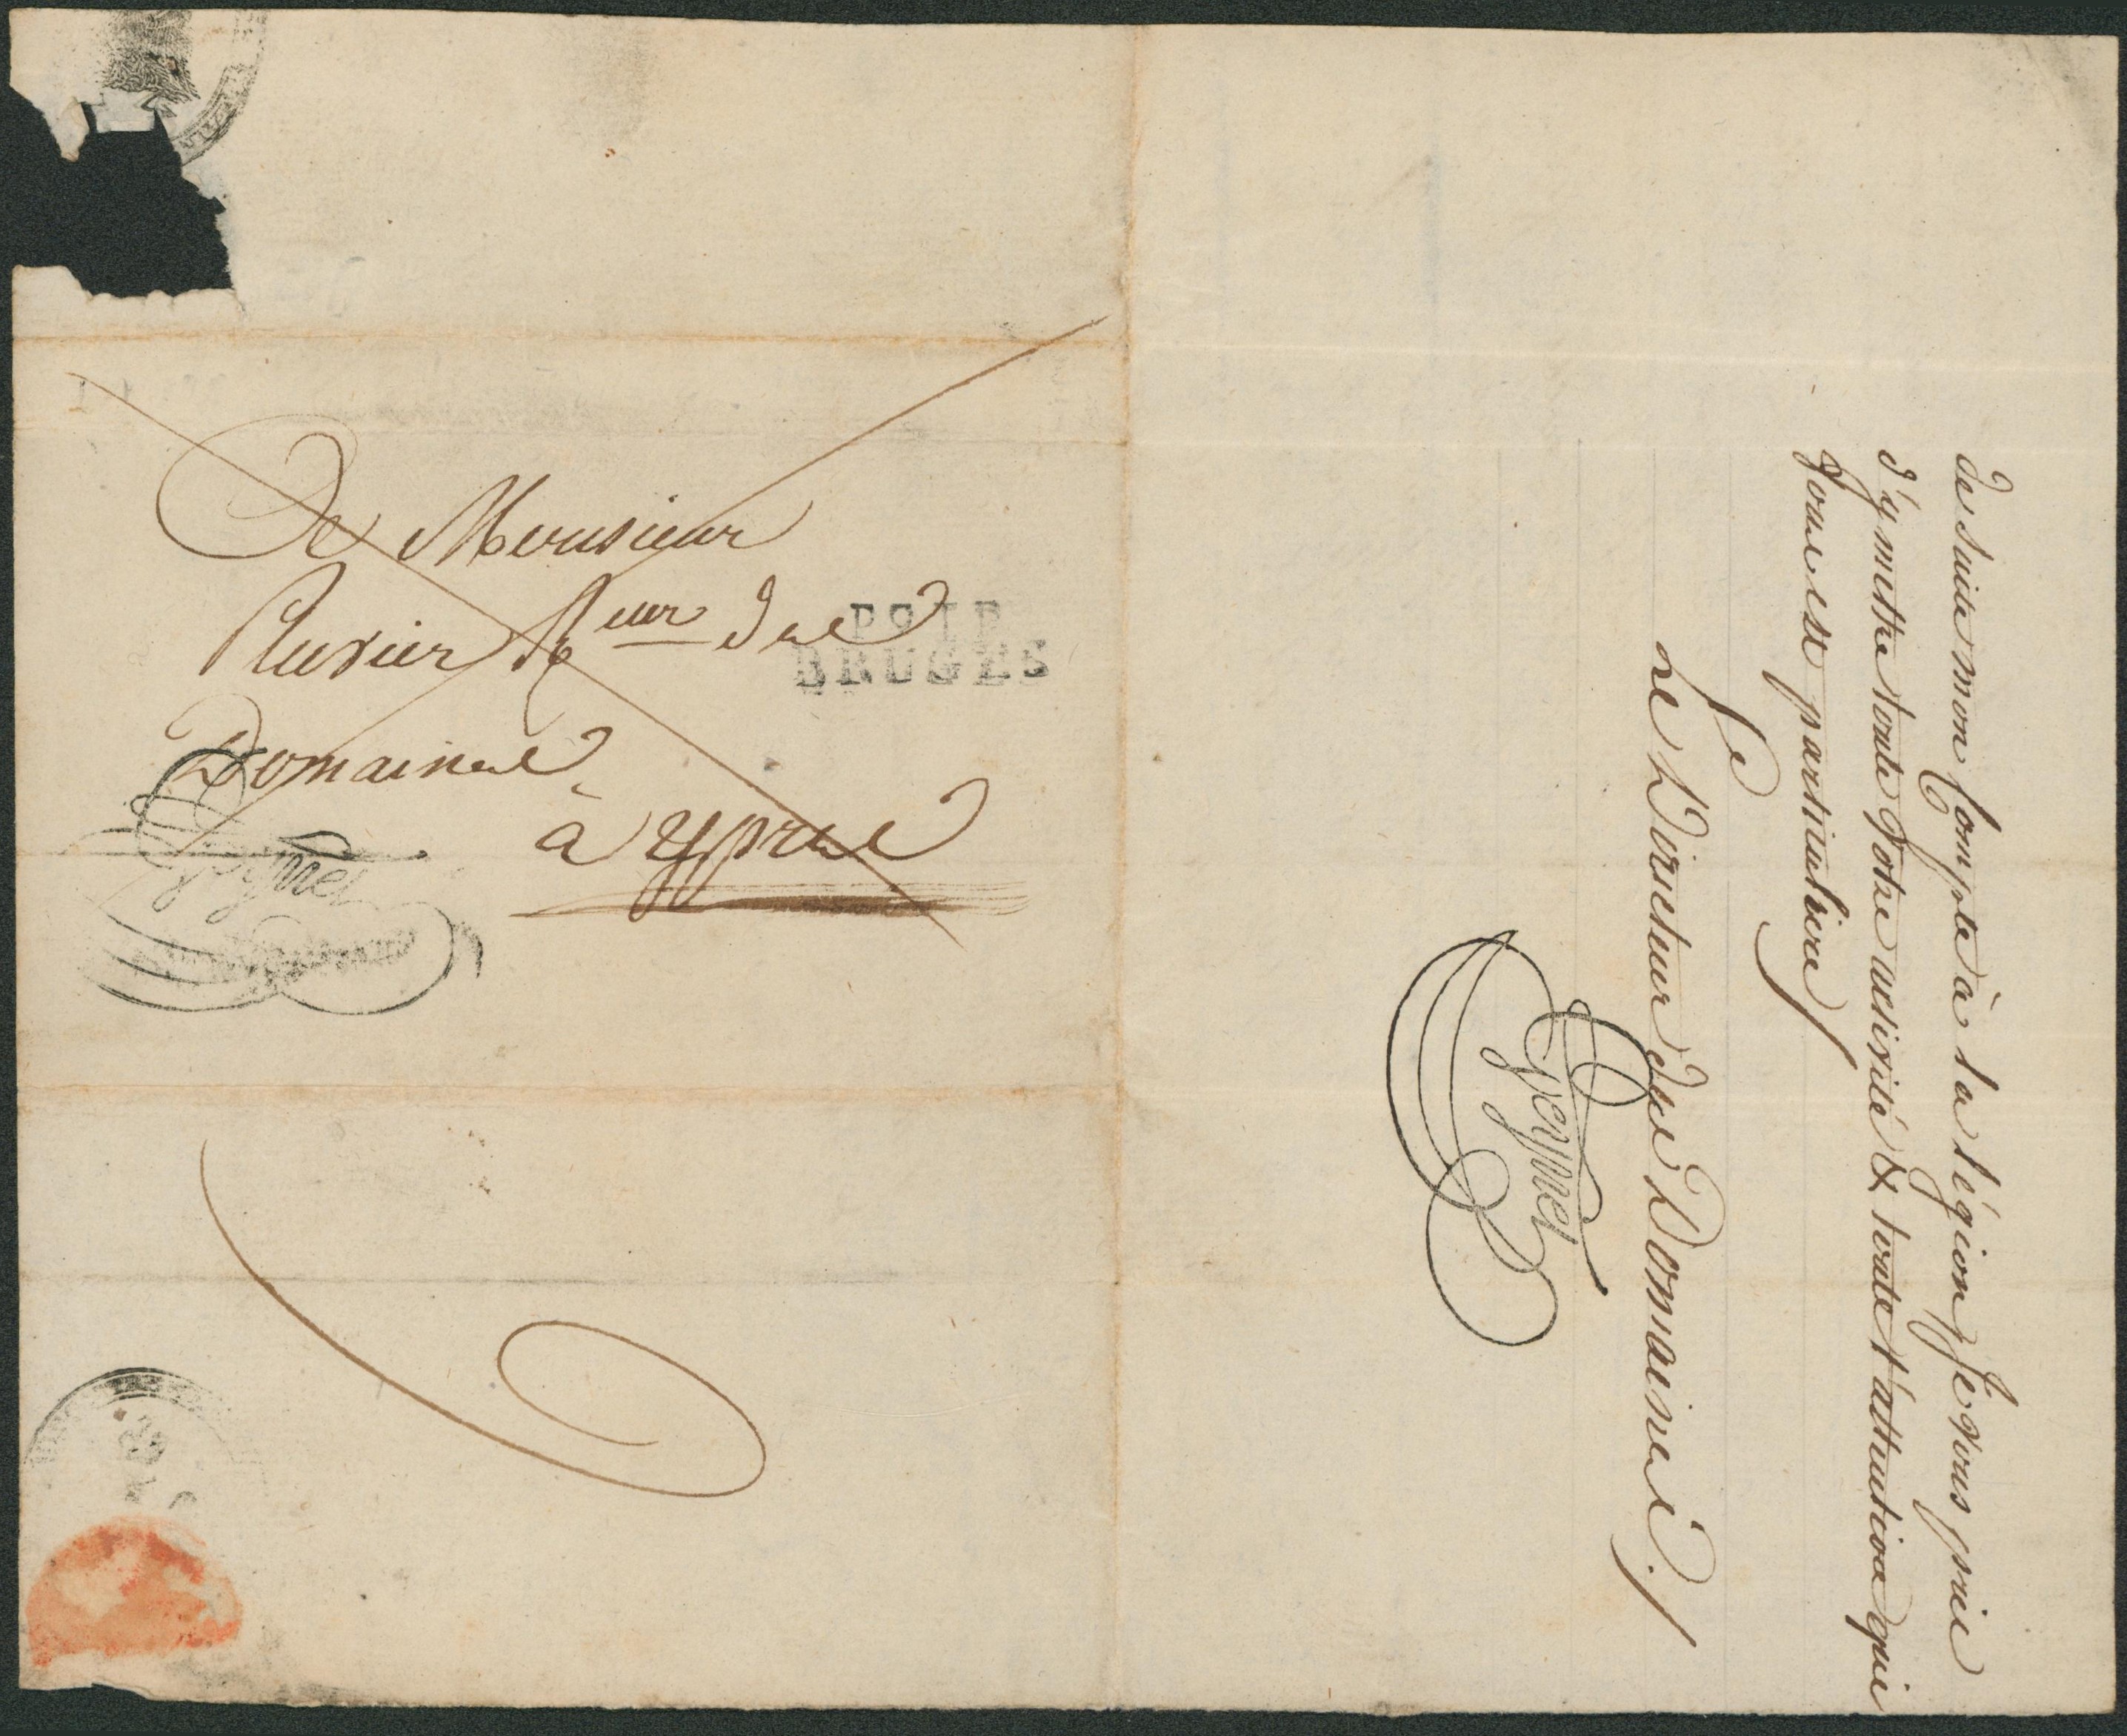 De Monsieur
Pluvier R^eur des
P91P
BRUGES
Domaines
à Ypres
de suite mon Compte à la légion. Je vous prie
d'y mettre toute votre activité & toute l'attention qui
vous est particulière
Le Directeur des Domaines